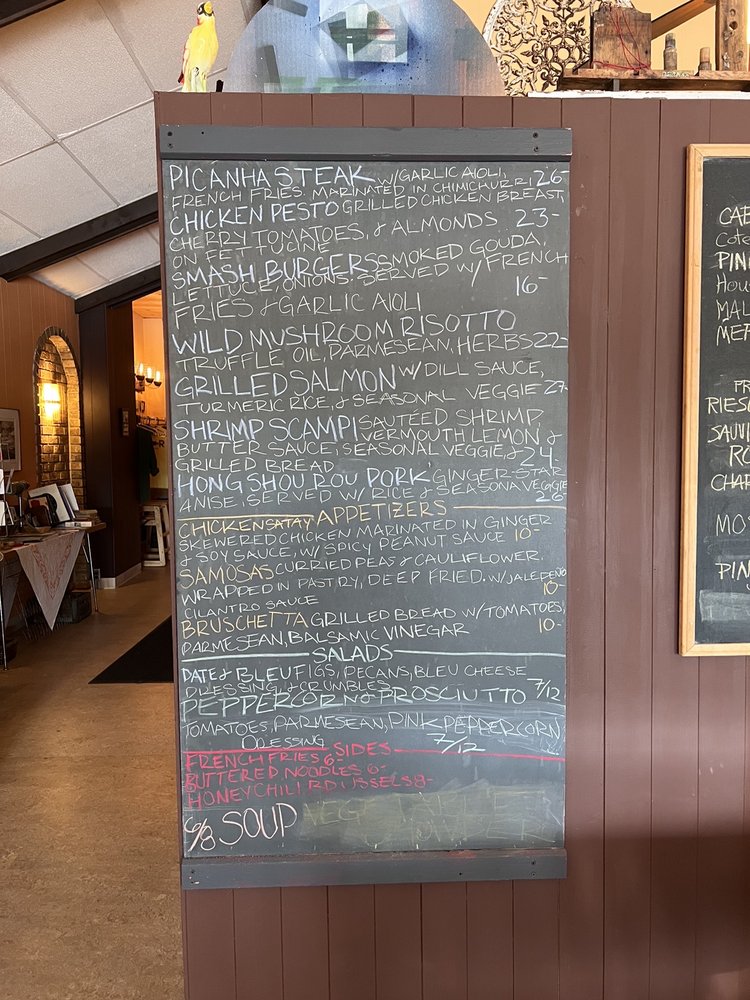 PICANHA STEAK W/GARLIC AIOLI, 26-
FRENCH FRIES. MARINATED IN CHIMICHURRI
CHICKEN PESTO GRILLED CHICKEN BREAST,
CHERRY TOMATOES, & ALMONDS 23-
ON FETTUCINE
SMASH BURGERS SMOKED GOUDA,
LETTUCE, ONIONS. SERVED W/ FRENCH 16-
FRIES & GARLIC AIOLI
WILD MUSHROOM RISOTTO
TRUFFLE OIL, PARMESEAN, HERBS 22-
GRILLED SALMON W/ DILL SAUCE,
TURMERIC RICE, & SEASONAL VEGGIE 27-
SHRIMP SCAMPI SAUTÉED SHRIMP,
VERMOUTH LEMON &
BUTTER SAUCE, SEASONAL VEGGIE, &
GRILLED BREAD 24-
HONG SHOU ROU PORK GINGER-STAR
ANISE, SERVED W/ RICE & SEASONAL VEGGIE
26-
APPETIZERS
CHICKEN SATAY
SKEWERED CHICKEN MARINATED IN GINGER
& SOY SAUCE, W/ SPICY PEANUT SAUCE 10-
SAMOSAS CURRIED PEAS & CAULIFLOWER
WRAPPED IN PASTRY, DEEP FRIED. W/JALEPEÑO
CILANTRO SAUCE 10-
BRUSCHETTA GRILLED BREAD W/TOMATOES,
PARMESEAN, BALSAMIC VINEGAR 10-
SALADS
DATE & BLEU FIGS, PECANS, BLEU CHEESE
DRESSING, & CRUMBLES 7/12
PEPPERCORN & PROSCIUTTO
TOMATOES, PARMESEAN, PINK PEPPERCORN
DRESSING 7/12
SIDES
FRENCH FRIES 6-
BUTTERED NOODLES 6-
HONEY CHILI BRUSSELS 8-
6/8 SOUP
CAB
Cote
PIN
Hou
MAL
MER
PR
RIES
SAUV
RO
CHAR
MO
PIN